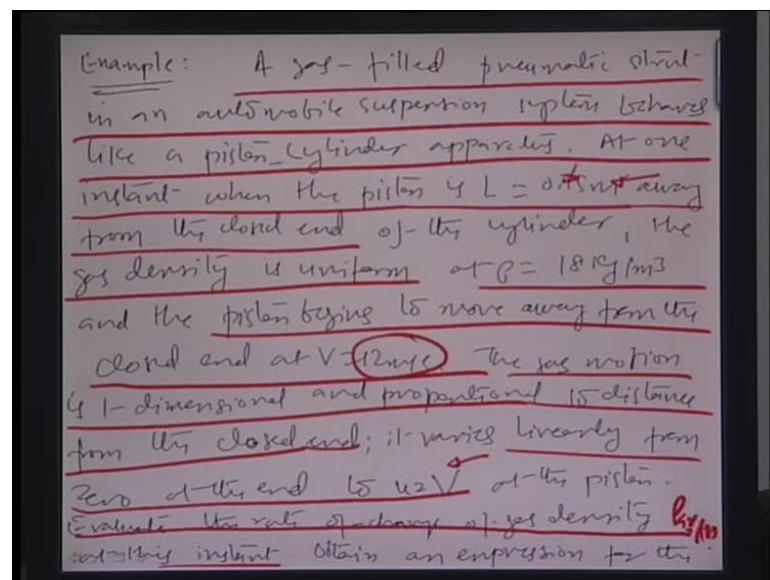 Example: A gas-filled pneumatic strut
in an automobile suspension system behaves
like a piston-cylinder apparatus. At one
instant when the piston is L = 0.15m away
from the closed end of the cylinder, the
gas density is uniform at ρ = 18 kg/m3
and the piston begins to move away from the
closed end at V = 12 m/s. The gas motion
is 1-dimensional and proportional to distance
from the closed end; it varies linearly from
zero at the end to u=V at the piston.
Evaluate the rate of change of gas density
at this instant. Obtain an expression for the